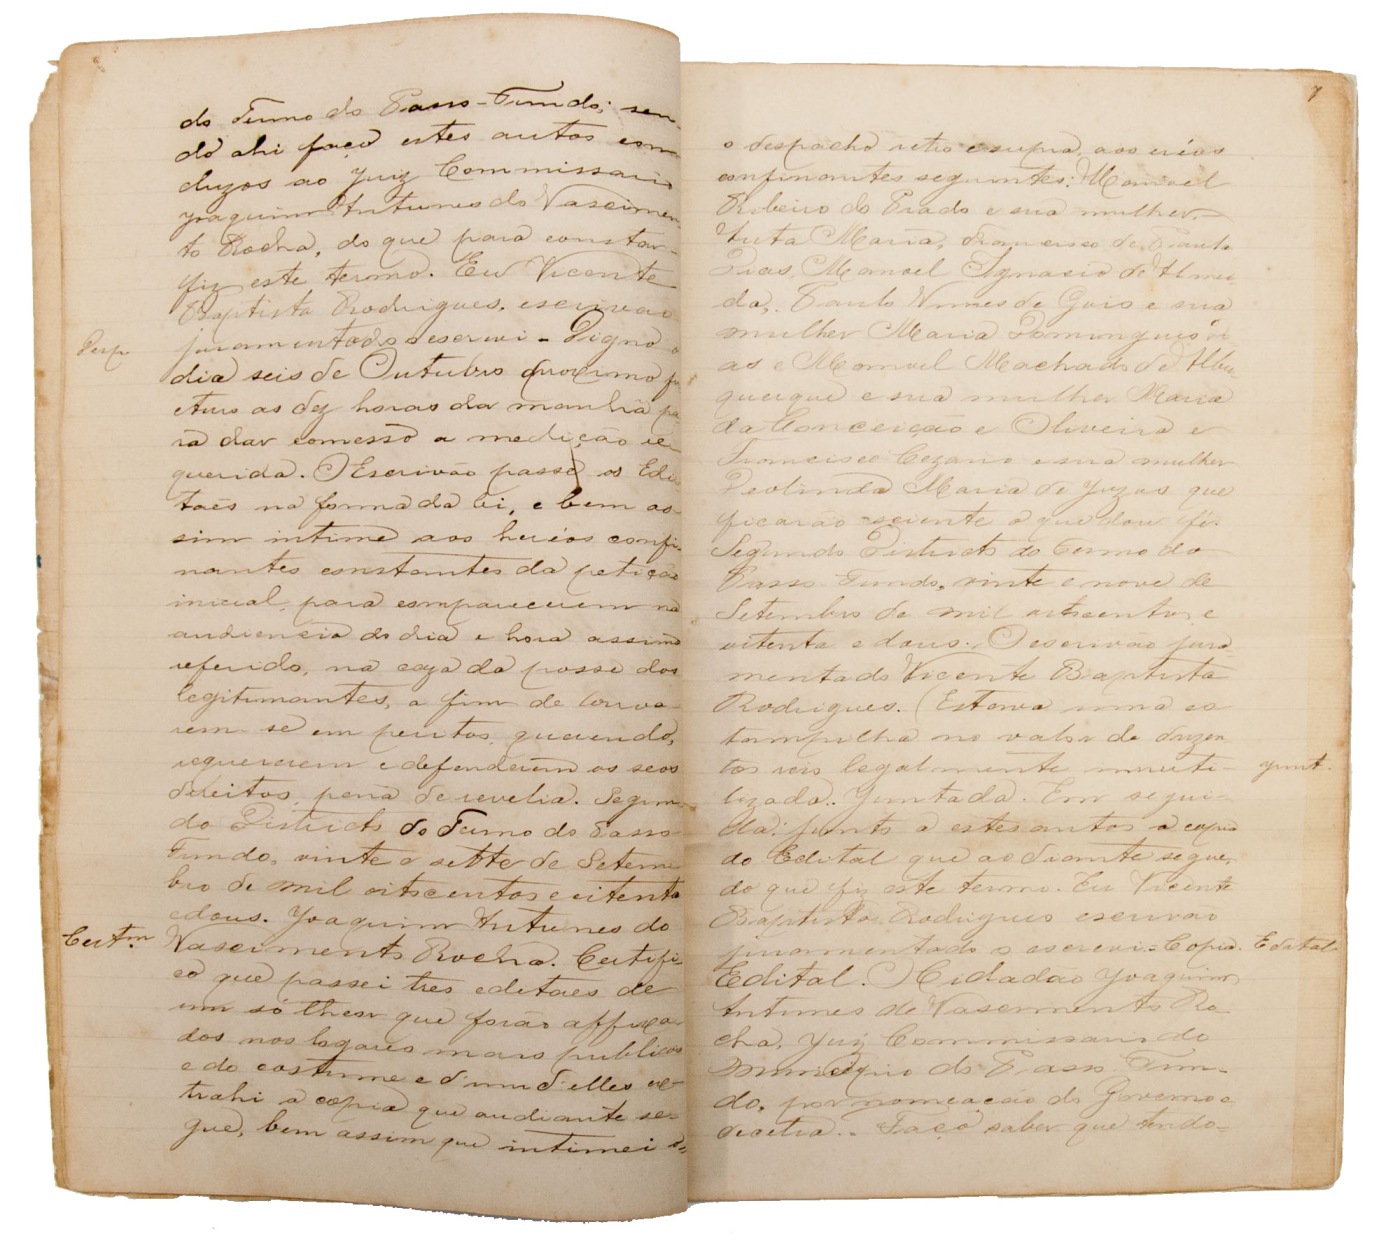 do Termo do Passo-Fundo; sen-
do ahi faço estes autos con-
cluzos ao Juiz Commissario
Joaquim Antunes do Nascimen-
to Rocha, do que para constar
fiz este termo. Eu Vicente
Baptista Rodrigues, escrivão
juramentado o escrevi - Digno o
Desp.
dia seis de Outubro proximo fu
cturo as dez horas da manhã pa
ra dar comesso a medição re
querida. O Escrivão passe os Edi-
taes na forma da lei, e bem as
sim intime aos heréos confi-
nantes constantes da petição
inicial, para comparecerem na
audiencia do dia e hora assima
referido, na caza da posse dos
legitimantes, a fim de louva
rem-se em peritos, querendo,
requererem e defenderem os seos
direitos, pena de revelia. Segun-
do Districto do Termo do Passo
Fundo, vinte e sette de Setem-
bro de mil oitocentos e oitenta
e dous. Joaquim Antunes do
Nascimento Rocha. Certifi-
Certm
co que passei tres editaes de
um só theor que forão affixa-
dos nos logares mais publicos
e do costume e d'um d'elles ex-
trahi a copia que audiante se-
gue, bem assim que intimei d=
7
o despacho retro e supra, aos eréos
confinantes seguintes: Manoel
Ribeiro do Prado e sua mulher
Anta Maria, Francisco de Paula
Dias, Manoel Ignacio de Almei
da, Paulo Nunes de Gois e sua
mulher Maria Domingues
as e Manoel Machado de Albu
querque e sua mulher Maria
da Conceição e Oliveira e
Francisco Cezario e sua mulher
Deolinda Maria de Jezus que
ficarão sciente o que dou fé.
Segundo Districto do Termo do
Passo Fundo, vinte e nove de
Setembro de mil oitocentos e
oitenta e dous. O escrivão jura
mentado Vicente Baptista
Rodrigues. (Estava uma es
tampilha no valor de duzen
tos reis legalmente inuti-
junt.
lizada. Juntada. Em segui-
da; junto a estes autos a copia
do Edital que ao diante segue,
do que fiz este termo. Eu Vicente
Baptista Rodrigues escrivão
juramentado o escrevi. Copia.
Edital
Edital. O Cidadão Joaquim
Antunes do Nascimento Ro
cha, Juiz Commissario do
Municipio do Passo Fun-
do, por nomeação do Governo
Faço saber que tendo-